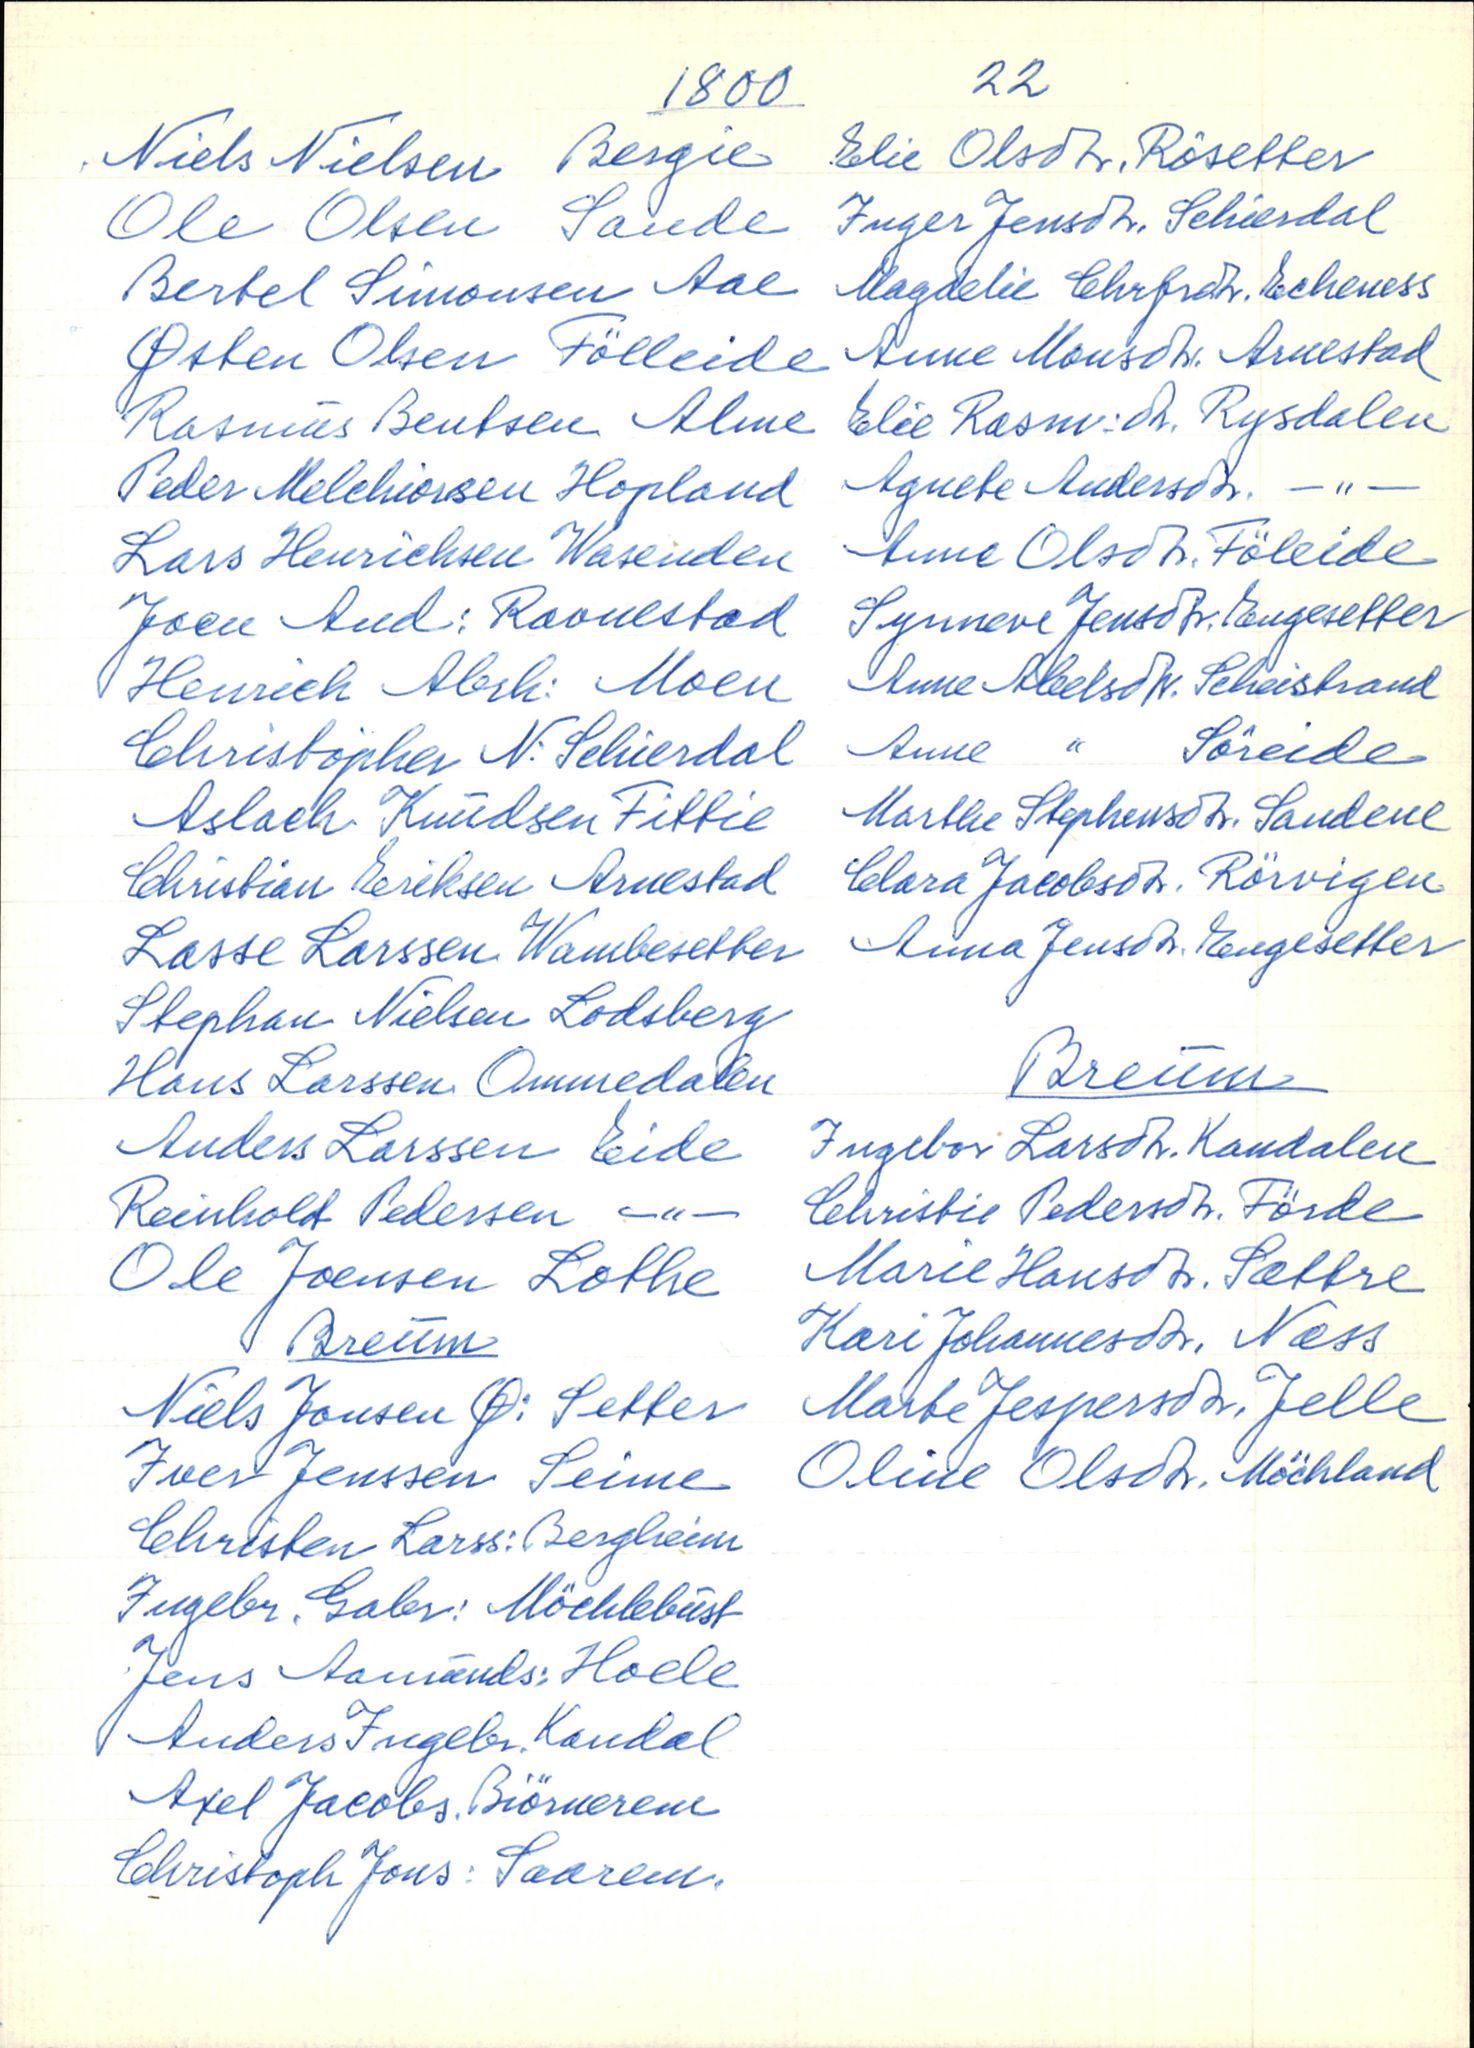 1800 22
Niels Nielsen Bergie
Ole Olsen Sande
Bertel Simonsen Aae
Østen Olsen Fölleide
Rasmus Bentsen Alme
Peder Melchiorsen Hopland
Lars Henrichsen Wasenden
Joen And: Ravnestad
Henrich Abrh: Moen
Christopher N: Schierdal
Aslach Knudsen Fittie
Christian Eriksen Arnestad
Lasse Larssen Wambesetter
Stephan Nielsen Lodsberg
Hans Larssen Ommedalen
Anders Larssen Eide
Reinholdt Pedersen —"—
Ole Joensen Lothe
Breum
Niels Jonsen Ø: Setter
Iver Jenssen Seime
Christen Larss: Bergheim
Ingebr. Gabr: Möchlebust
Jens Aamunds: Hoele
Anders Ingebr. Kandal
Axel Jacobs. Biörnerem
Christoph Jons: Saarem.
Elie Olsdtr. Rösetter
Inger Jensdtr. Schierdal
Magdelie Chrfrdtr. Echeness
Anne Monsdtr. Arnestad
Elie Rasm:dtr. Rysdalen
Agnete Andersdtr. —"—
Anne Olsdtr. Föleide
Synneve Jensdtr. Engesetter
Anne Abelsdtr. Scheistrand
Anne " Söreide
Marthe Stephensdtr. Sandene
Clara Jacobsdtr. Rörvigen
Anna Jensdtr. Engesetter
Breum
Ingebor Larsdtr. Kandalen
Christie Pedersdtr. Förde
Marie Hansdtr. Sættre
Kari Johannesdtr. Næss
Marte Jespersdtr. Jelle
Oline Olsdtr. Möchland